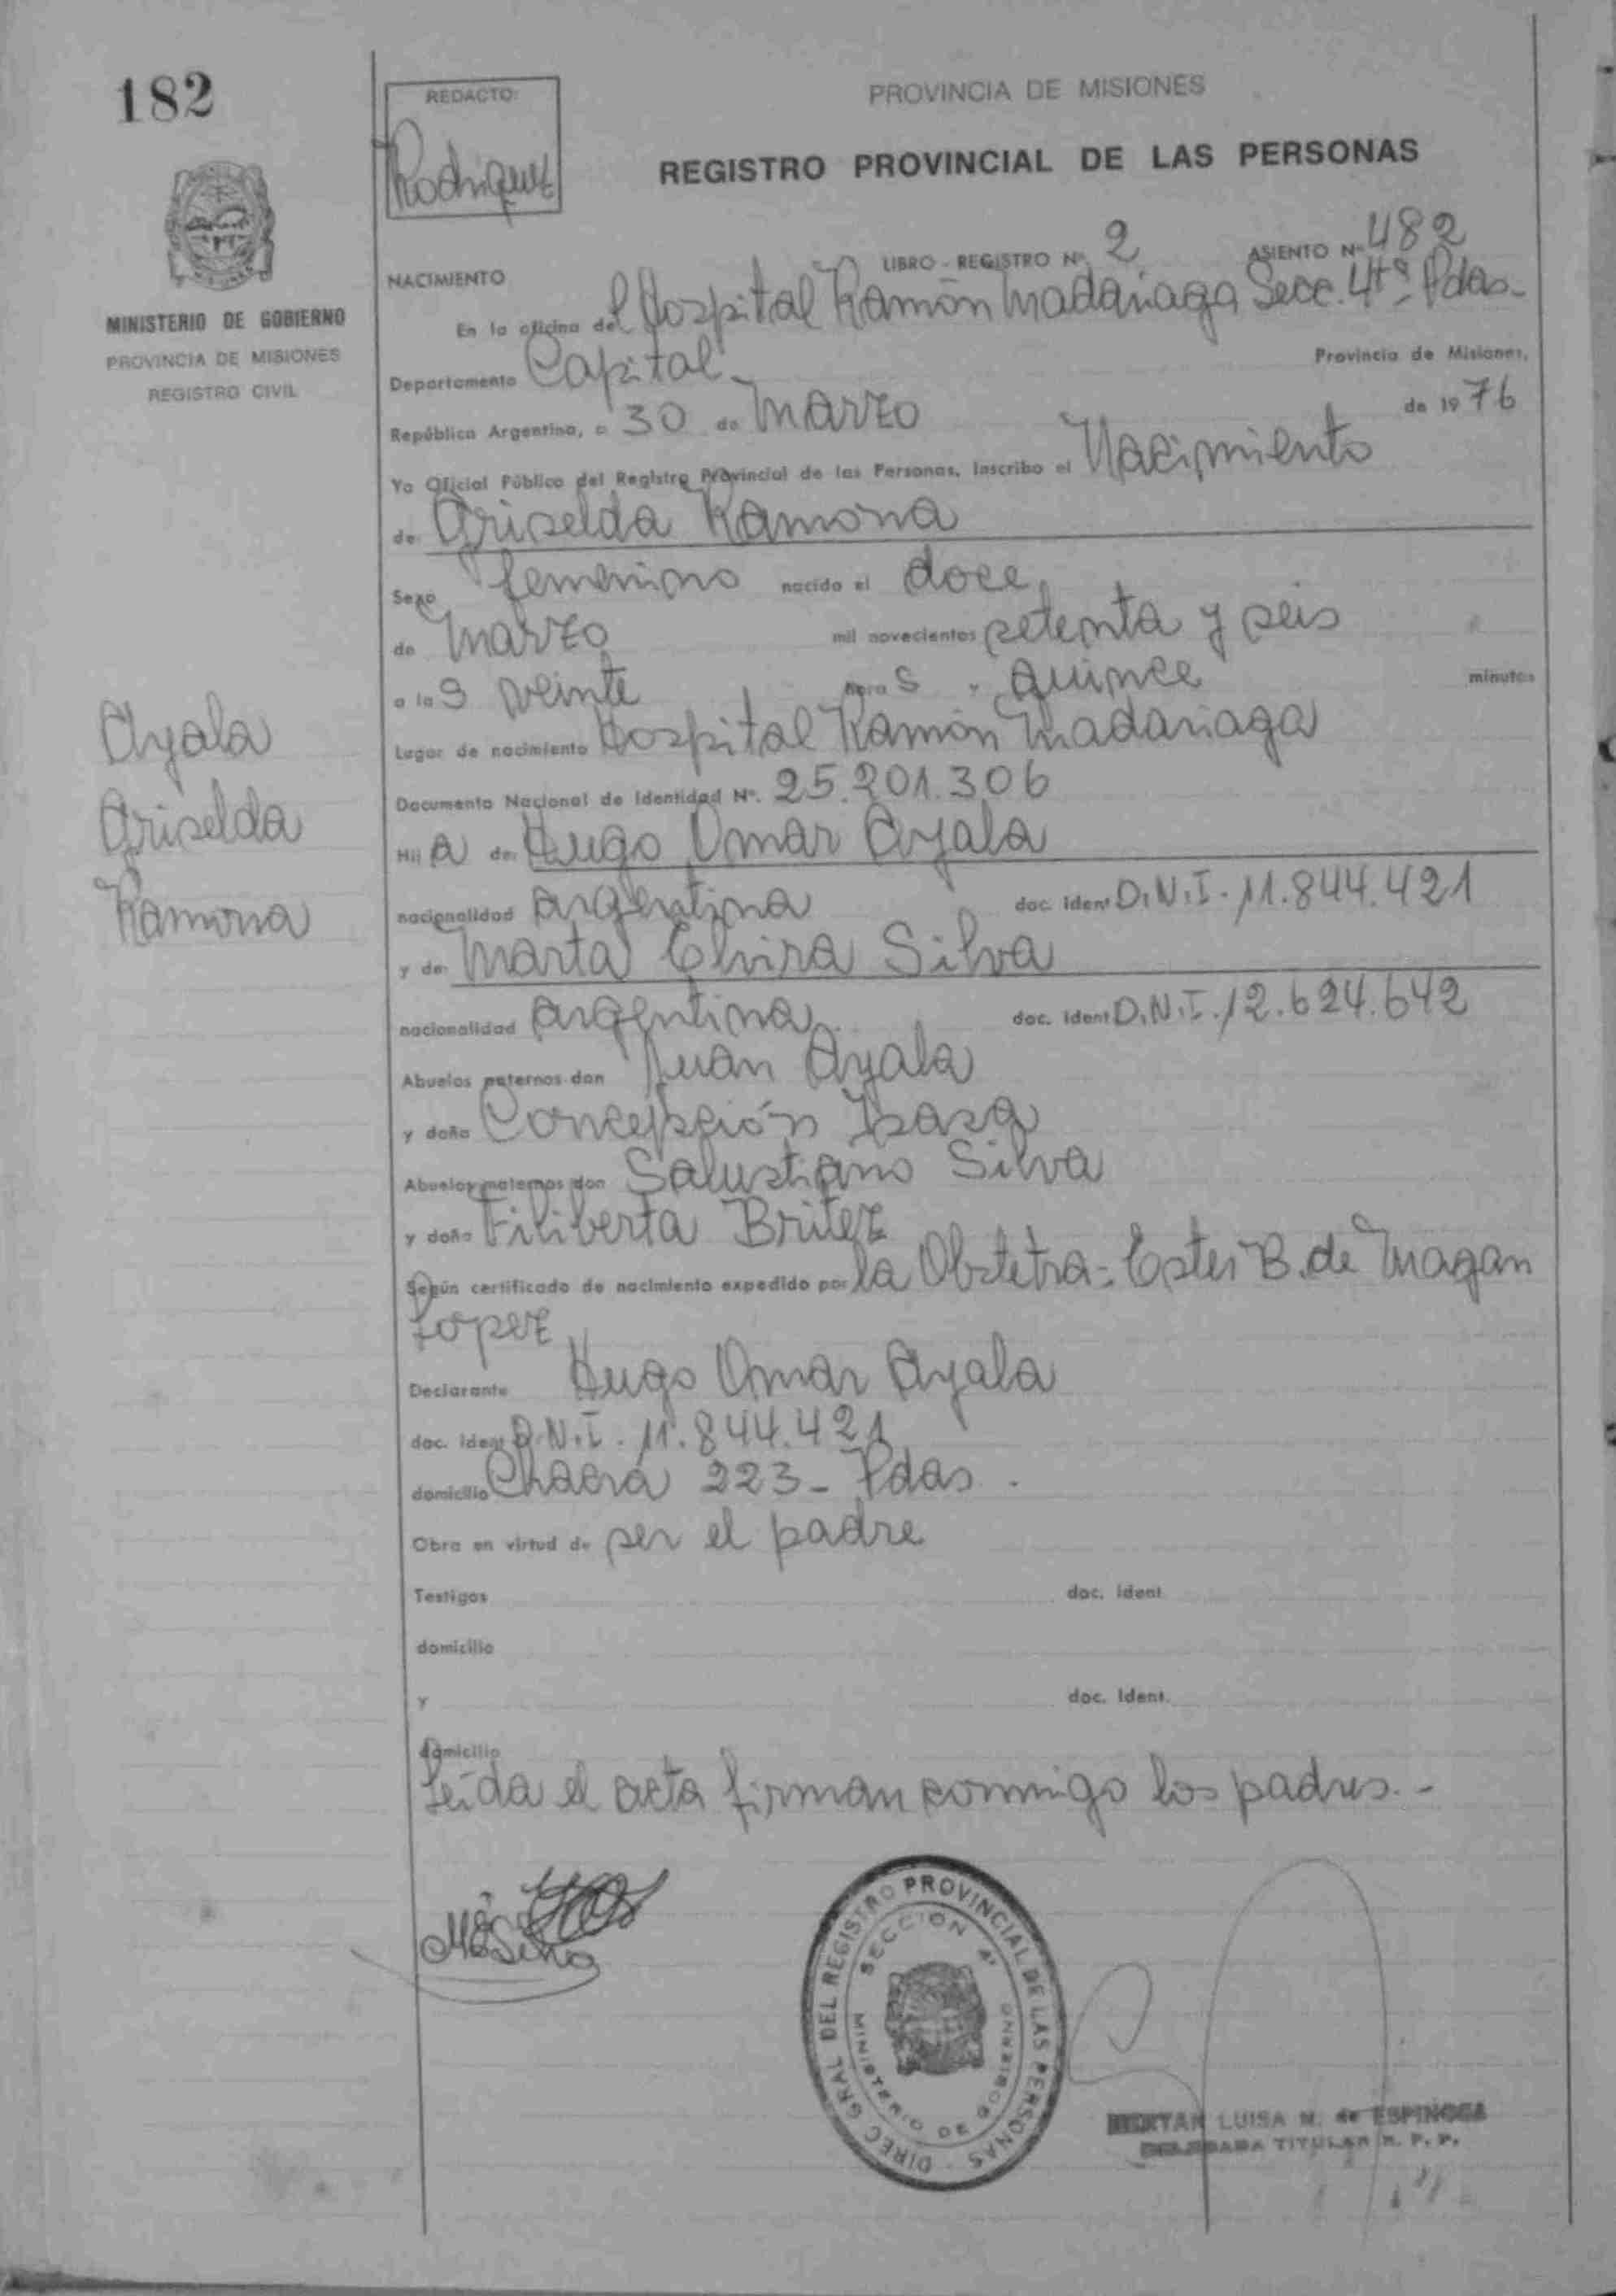 182
REDACTO:
Rodriguez
PROVINCIA DE MISIONES
REGISTRO PROVINCIAL DE LAS PERSONAS
MINISTERIO DE GOBIERNO
PROVINCIA DE MISIONES
REGISTRO CIVIL
LIBRO - REGISTRO Nº 2 ASIENTO Nº 482
NACIMIENTO
En la oficina del Hospital Ramón Madariaga Secc. 4ta. Pdas-
Departamento Capital - Provincia de Misiones,
República Argentina, a 30 de Marzo de 1976
Yo Oficial Público del Registro Provincial de las Personas, inscribo el Nacimiento
de Griselda Ramona
Sexo femenino nacido el doce
de Marzo mil novecientos setenta y seis
a las veinte horas y quince minutos
Lugar de nacimiento Hospital Ramón Madariaga
Documento Nacional de Identidad Nº. 25.201.306
Hija de Hugo Omar Ayala
nacionalidad argentina doc. ident D.N.I. 11.844.421
y de Marta Elvira Silva
nacionalidad argentina doc. ident D.N.I. 12.624.642
Abuelos paternos don Juan Ayala
y doña Concepción
Abuelos maternos don Salustiano Silva
y doña Filiberta Britez
Según certificado de nacimiento expedido por la Obstetra- Ester B. de Magan
Lopez
Declarante Hugo Omar Ayala
doc. ident D.N.I. 11.844.421
domicilio Chacra 223- Pdas.
Obra en virtud de ser el padre
Testigos doc. ident.
domicilio
y doc. ident.
domicilio
Leída el acta firman conmigo los padres.-
Ayala
Griselda
Ramona
MESilva
DIREC GRAL DEL REGISTRO PROVINCIAL DE LAS PERSONAS
SECCION 4ª
MINISTERIO DE GOBIERNO
LUISA N. de ESPINOSA
DELEGADA TITULAR R. P. P.